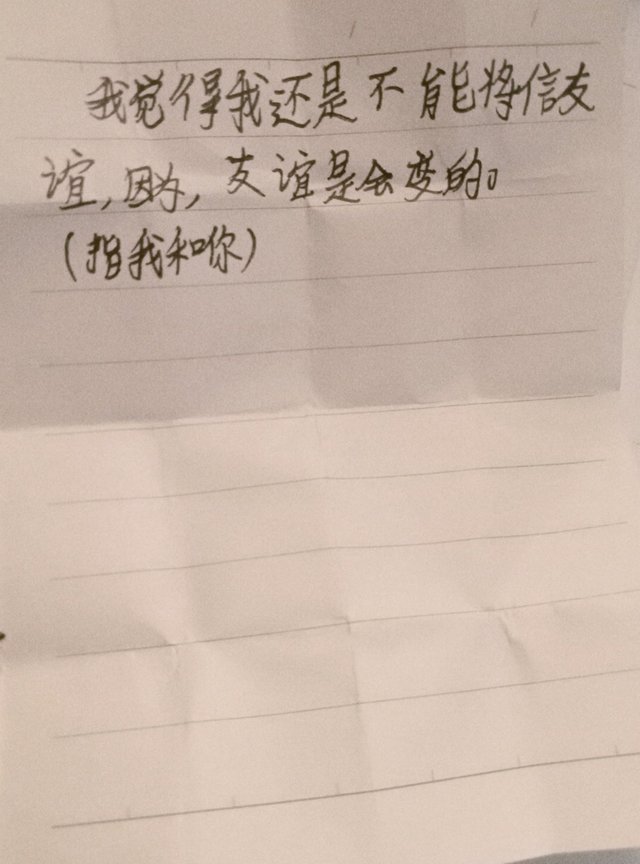 我觉得我还是不能将信友
谊,因为,友谊是会变的。
(指我和你)